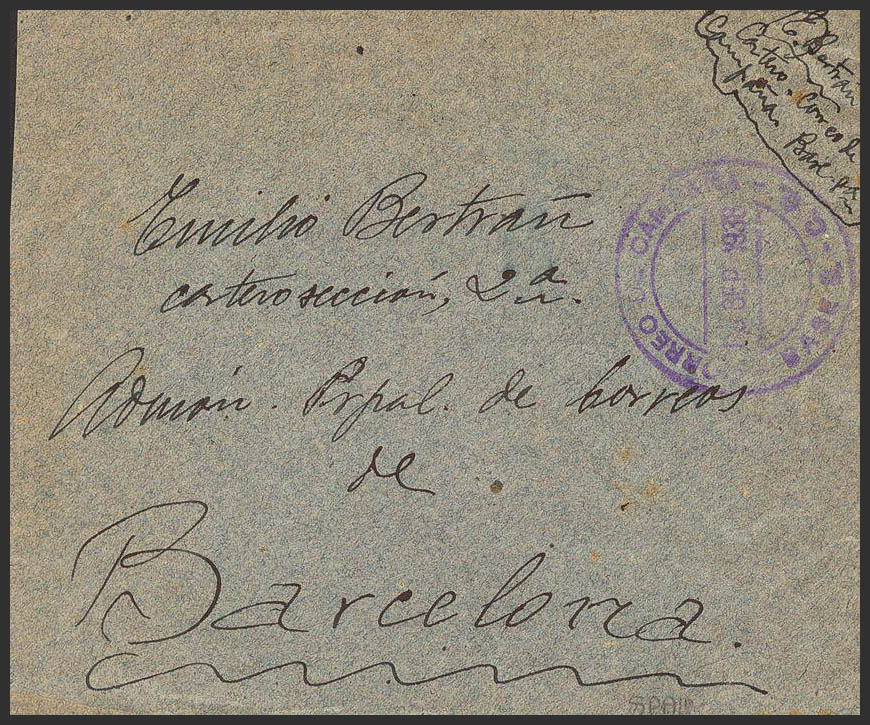 E. Bertrán
Cartero. Correo de
Campaña. Base
Emilio Bertrán
cartero sección, 2ª.
Admón. Prpal. de correos
de
Barcelona.
CORREO DE CAMPAÑA
BASE
1938
SPAIN